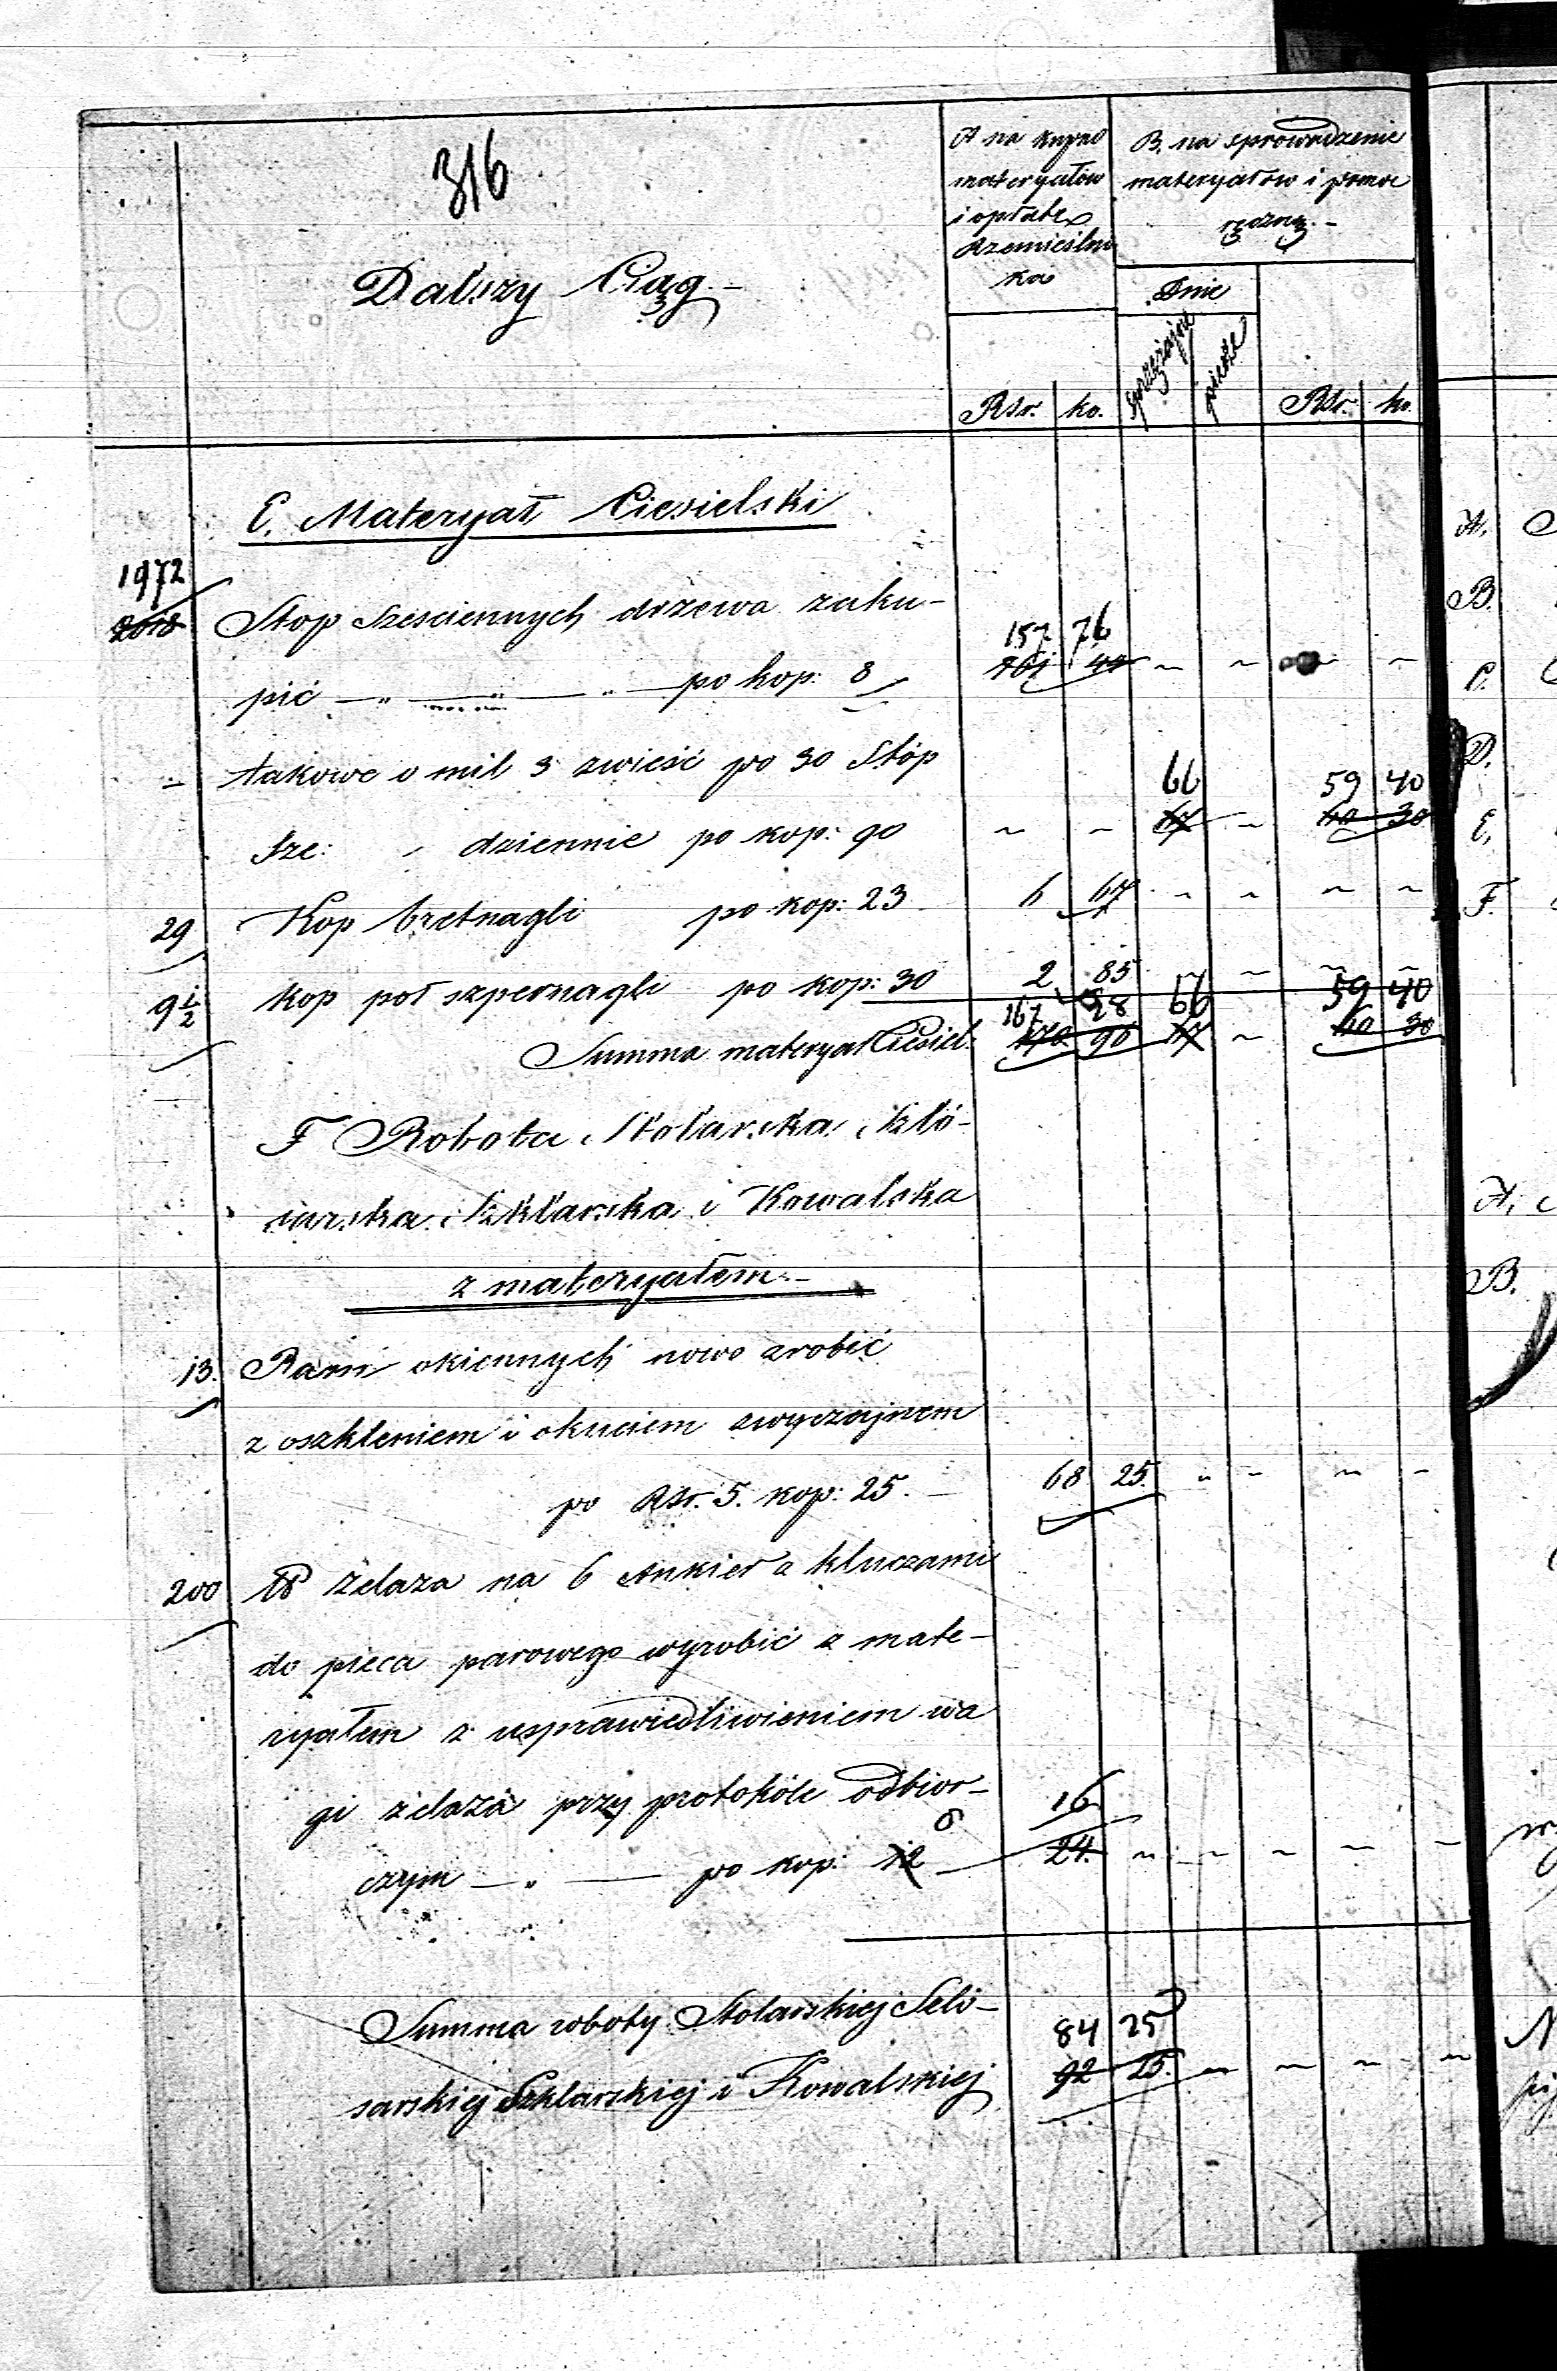 316
Dalszy Ciąg.-
A na kupno
materyałów
i opłatę
Rzemieśln
ka
B. na sprowadzenie
materyałów i pomoc
ręczną.-
Dnie
sprzężajne piesze
Rsr. ko. Rsr. ko.
E. Materyał Ciesielski
1972
2018 Stop sześciennych drzewa zaku-
157 76
pić —„— —„— —„— po kop: 8 161 44 ~ ~ ~ ~
- takowe o mil 3 zwieść po 30 Stóp
66 59 40
Sze: „ dziennie po kop: 90 ~ ~ 67 ~ 60 30
29 Kop bretnagli po kop: 23 6 67 ~ ~ ~ ~
9 1/2 kop poł szpernagli po kop: 30 2 85 ~ ~ ~ ~
167 28 66 59 40
Summa materyał Ciesiel: 170 96 67 ~ 60 30
F Robota Stolarska Szló-
sarska Szklarska i Kowalska
z materyałem.-
13. Ram okiennych nowo zrobić
z oszkleniem i okuciem zwyczajnem
po Rsr. 5. kop: 25. - 68 25. ~ ~ ~ ~
200 ℔ żelaza na 6 Ankier z kluczami
do pieca parowego wyrobić z mate-
ryałem z usprawiedliwieniem wa
gi żelaza przy protokóle odbior- 16
8
czym —„— — po kop: 12 — 24. ~ ~ ~ ~ ~
Summa roboty Stolarskiej Seló- 84 25
sarskiej Szklarskiej i Kowalskiej 92 25. ~ ~ ~ ~
A.
B.
C.
D.
E.
F.
A.
B.